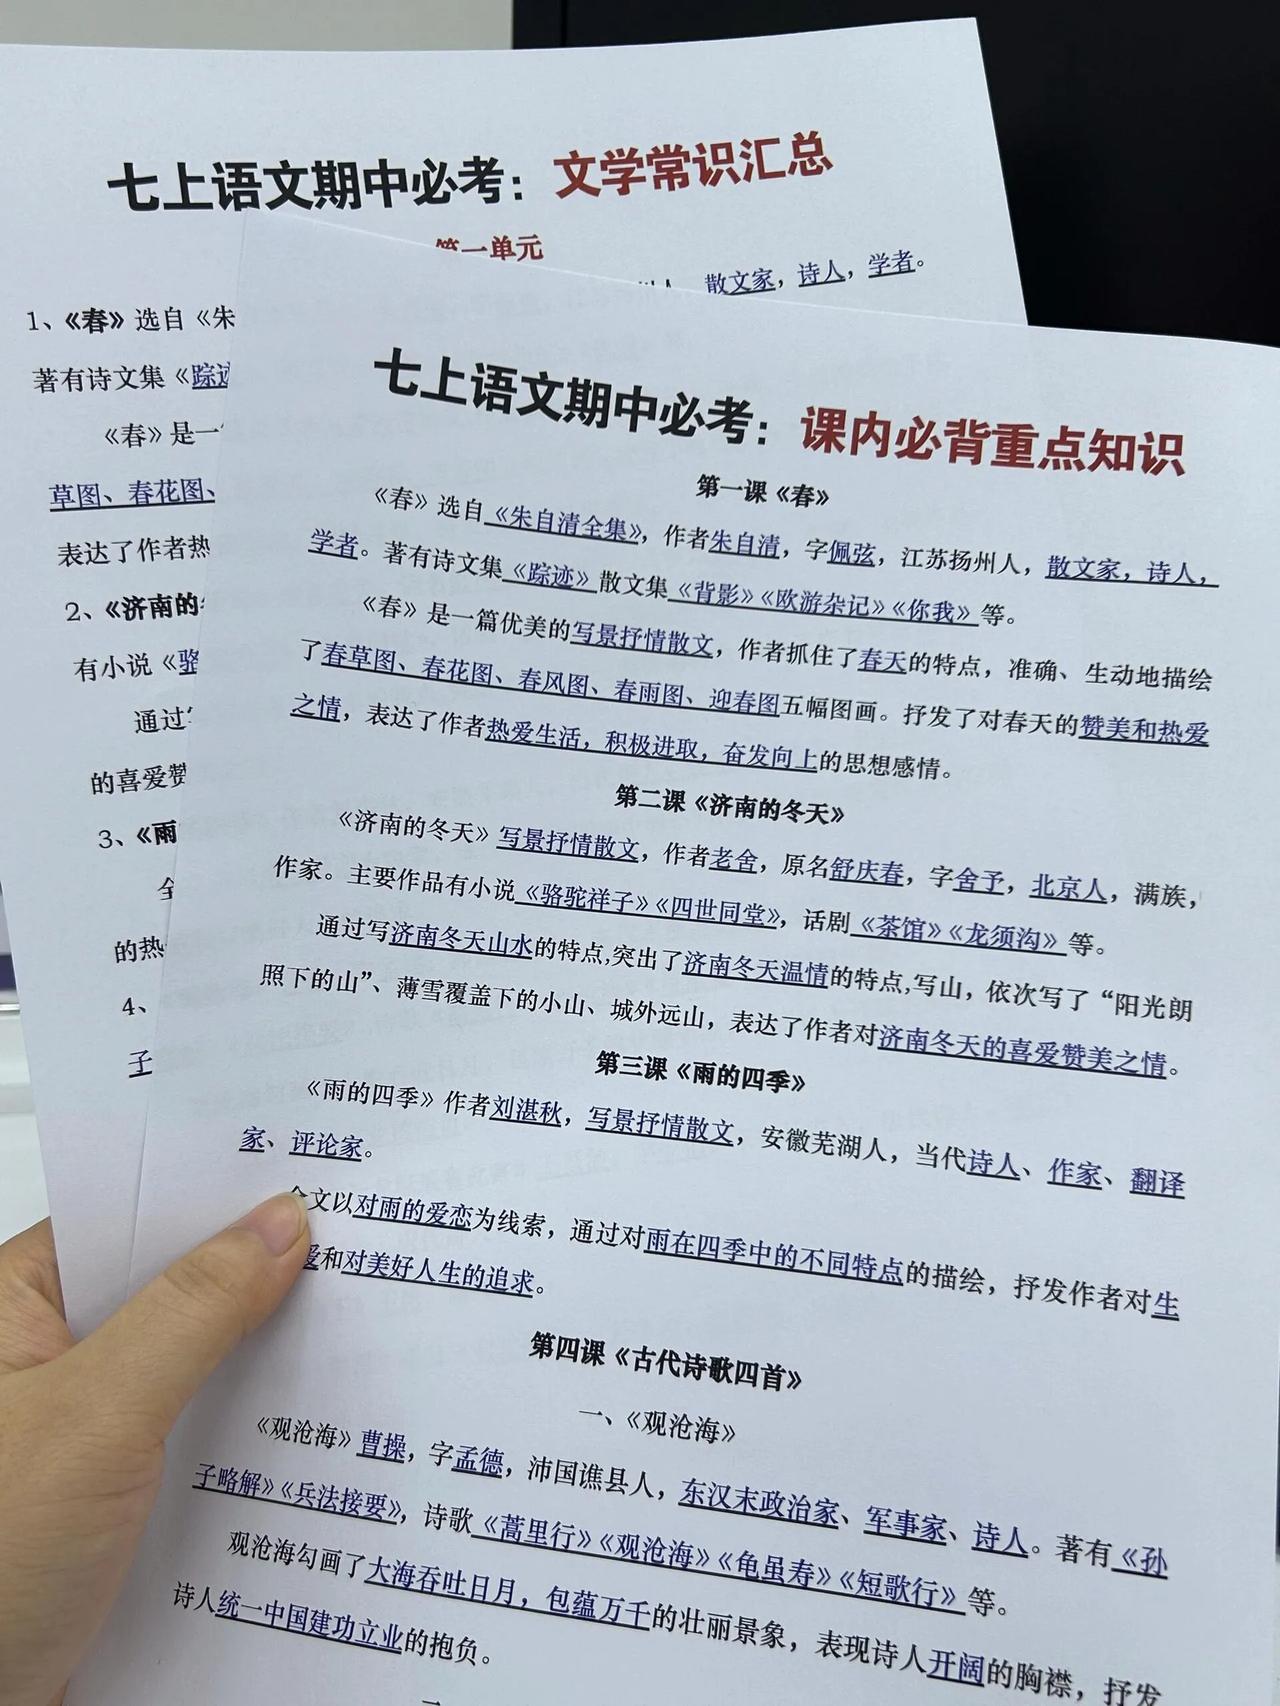 七上语文期中必考：文学常识汇总
第一单元
散文家，诗人，学者。
1、《春》选自《朱
著有诗文集《踪迹
《春》是一
草图、春花图、
表达了作者热
2、《济南的
有小说《骆
通过
的喜爱赞
3、《雨
全
的热
4、
子
七上语文期中必考：课内必背重点知识
第一课《春》
《春》选自《朱自清全集》，作者朱自清，字佩弦，江苏扬州人，散文家，诗人，
学者。著有诗文集《踪迹》散文集《背影》《欧游杂记》《你我》等。
《春》是一篇优美的写景抒情散文，作者抓住了春天的特点，准确、生动地描绘
了春草图、春花图、春风图、春雨图、迎春图五幅图画。抒发了对春天的赞美和热爱
之情，表达了作者热爱生活，积极进取，奋发向上的思想感情。
第二课《济南的冬天》
《济南的冬天》写景抒情散文，作者老舍，原名舒庆春，字舍予，北京人，满族，
作家。主要作品有小说《骆驼祥子》《四世同堂》，话剧《茶馆》《龙须沟》等。
通过写济南冬天山水的特点,突出了济南冬天温情的特点,写山，依次写了“阳光朗
照下的山”、薄雪覆盖下的小山、城外远山，表达了作者对济南冬天的喜爱赞美之情。
第三课《雨的四季》
《雨的四季》作者刘湛秋，写景抒情散文，安徽芜湖人，当代诗人、作家、翻译
家、评论家。
全文以对雨的爱恋为线索，通过对雨在四季中的不同特点的描绘，抒发作者对生
爱和对美好人生的追求。
第四课《古代诗歌四首》
一、《观沧海》
《观沧海》曹操，字孟德，沛国谯县人，东汉末政治家、军事家、诗人。著有《孙
子略解》《兵法接要》，诗歌《蒿里行》《观沧海》《龟虽寿》《短歌行》等。
观沧海勾画了大海吞吐日月，包蕴万千的壮丽景象，表现诗人开阔的胸襟，抒发
诗人统一中国建功立业的抱负。